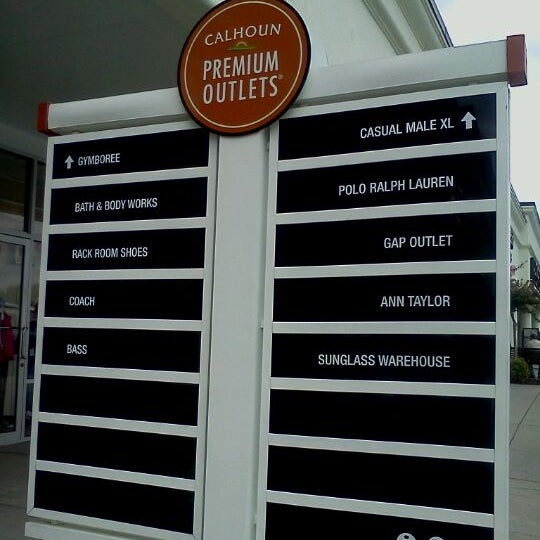 CALHOUN
PREMIUM
OUTLETS®
GYMBOREE
BATH & BODY WORKS
RACK ROOM SHOES
COACH
BASS
CASUAL MALE XL
POLO RALPH LAUREN
GAP OUTLET
ANN TAYLOR
SUNGLASS WAREHOUSE